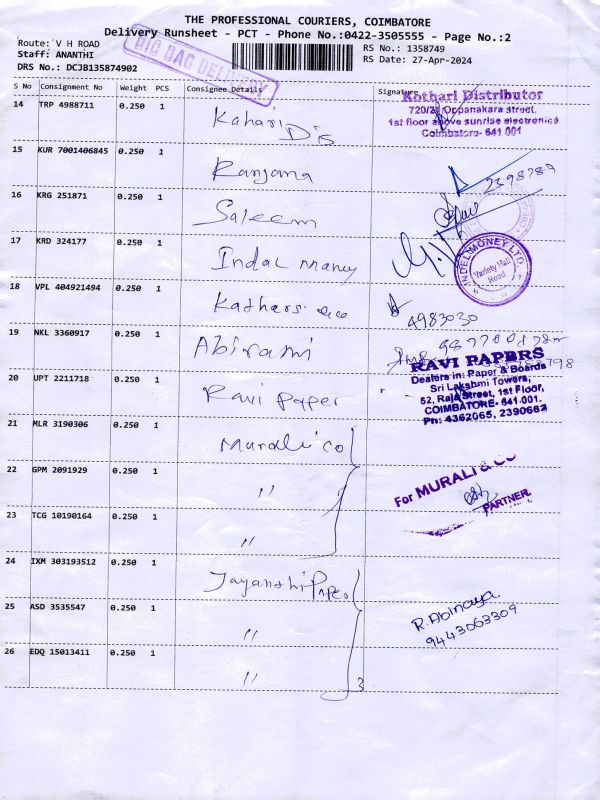 THE PROFESSIONAL COURIERS, COIMBATORE
Delivery Runsheet - PCT - Phone No.:0422-3505555 - Page No.:2
Route: V H ROAD
Staff: ANANTHI
DRS No: DCJB135874902
BIG BAG DELIVERY
RS No: 1358749
RS Date: 27-Apr-2024
S No Consignment No Weight PCS Consignee Details Signature
14 TRP 4988711 0.250 1 Kahari Dis
Kothari Distributor
720/21 Oppanakara street.
1st floor above sunrise electronics
Coimbatore- 641 001
15 KUR 7001406845 0.250 1 Ranjana
2398789
16 KRG 251871 0.250 1 Saleem
17 KRD 324177 0.250 1 Indal Maney
INDELMONEY LTD.
Variety Hall
Road
18 VPL 404921494 0.250 1
4983030
19 NKL 3360917 0.250 1 Abirami
20 UPT 2211718 0.250 1 Ravi Paper
RAVI PAPERS
Dealers in: Paper & Boards
Sri Lakshmi Towers,
52, Raja Street, 1st Floor,
COIMBATORE- 641 001.
Ph: 4362065, 2390662
21 MLR 3190306 0.250 1 Murali co
22 GPM 2091929 0.250 1 "
For MURALI & CO
PARTNER.
23 TCG 10190164 0.250 1 "
24 IXM 303193512 0.250 1 Jayanthi
25 ASD 3535547 0.250 1 "
R. Abinaya.
9443063309
26 EDQ 15013411 0.250 1 "
3